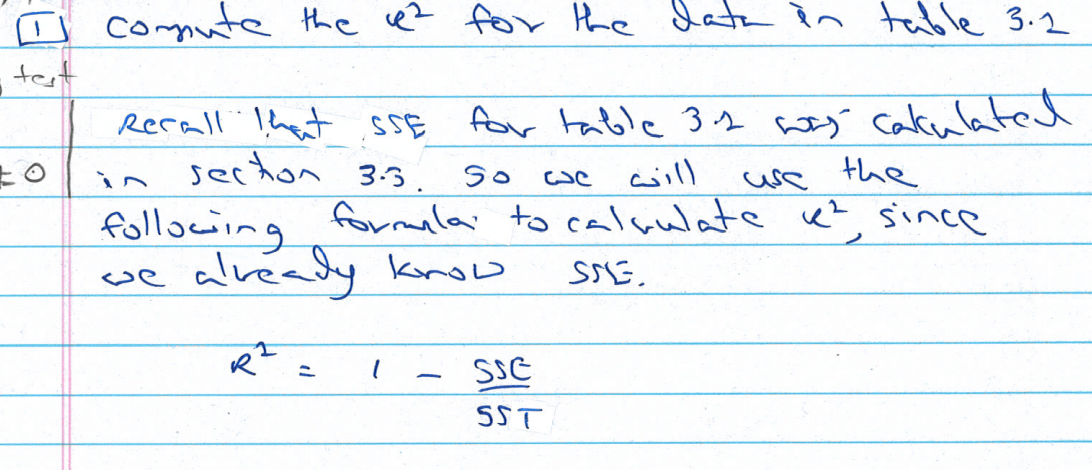 1 compute the R² for the data in table 3.2
test
Recall that SSE for table 3.2 was calculated
= 0 in section 3.3. so we will use the
following formula to calculate R², since
we already know SSE.
R² = 1 - SSE
SST